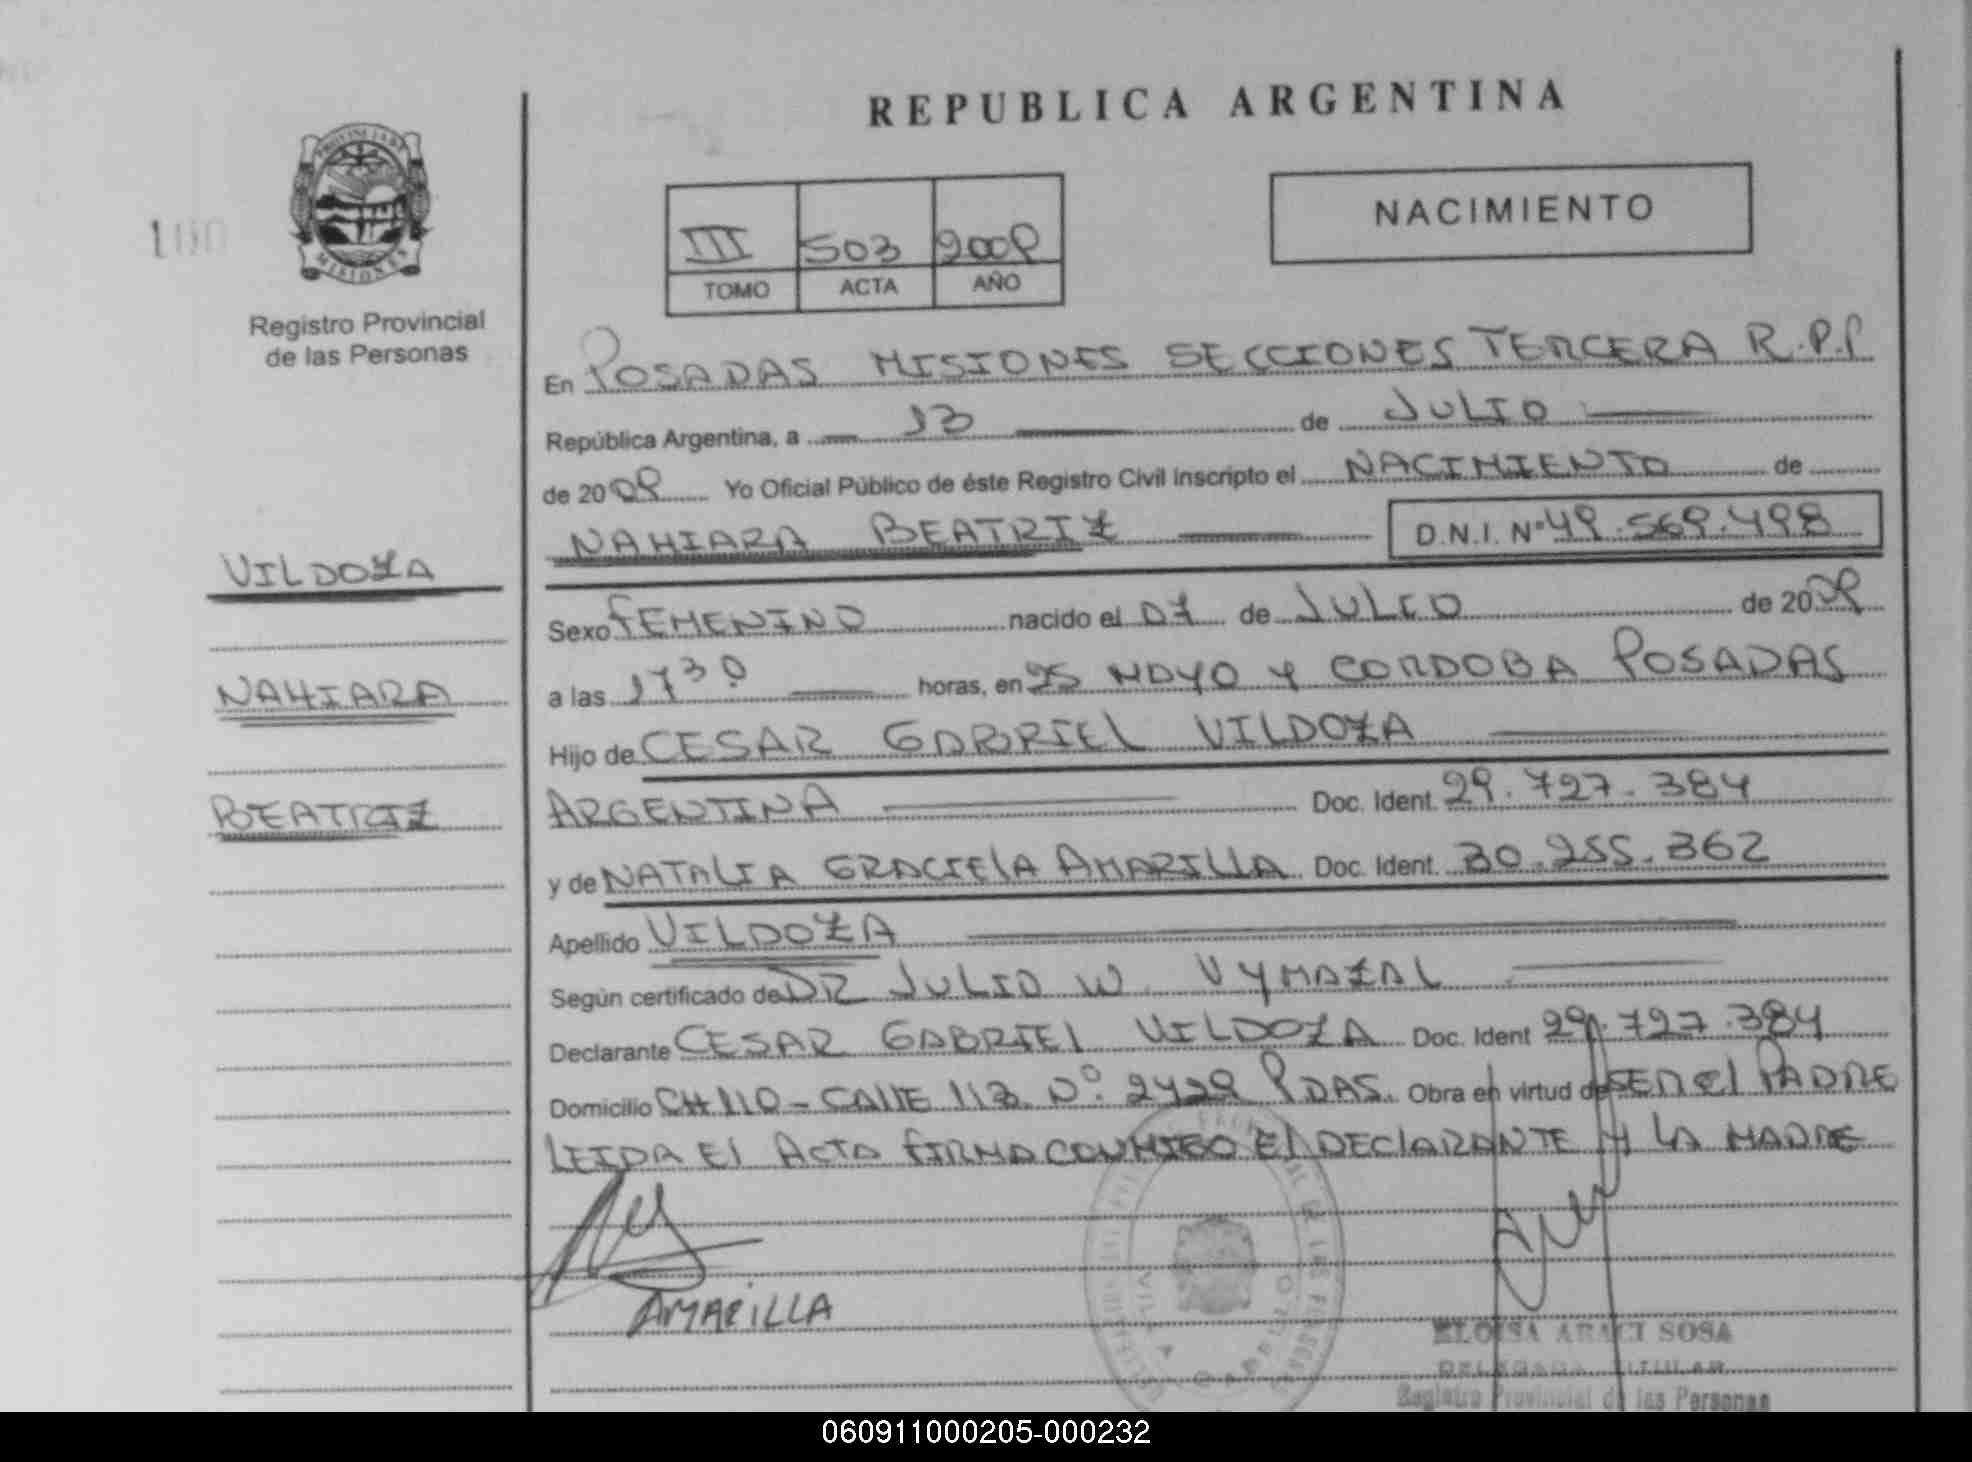 REPUBLICA ARGENTINA
PROVINCIA DE
MISIONES
100
Registro Provincial
de las Personas
III 503 2009
TOMO ACTA AÑO
NACIMIENTO
En POSADAS MISIONES SECCIONES TERCERA R.P.P
República Argentina, a 13 de JULIO
de 2009 Yo Oficial Público de éste Registro Civil Inscripto el NACIMIENTO de
NAHIARA BEATRIZ D.N.I. Nº 49.569.498
VILDOZA
NAHIARA
BEATRIZ
Sexo FEMENINO nacido el 07 de JULIO de 2009
a las 1730 horas, en 25 MAYO Y CORDOBA POSADAS
Hijo de CESAR GABRIEL VILDOZA
ARGENTINA Doc. Ident. 29.727.384
y de NATALIA GRACIELA AMARILLA Doc. Ident. 30.255.362
Apellido VILDOZA
Según certificado de DR JULIO W. VYMAZAL
Declarante CESAR GABRIEL VILDOZA Doc. Ident 29.727.384
Domicilio CH 110 - CALLE 113 Nº 2429 PDAS. Obra en virtud de SER El PADRE
LEIDA El ACTA FIRMA CONMIGO El DECLARANTE Y LA MADRE
AMARILLA
ELOISA ARACI SOSA
DELEGADA TITULAR
Registro Provincial de las Personas
060911000205-000232